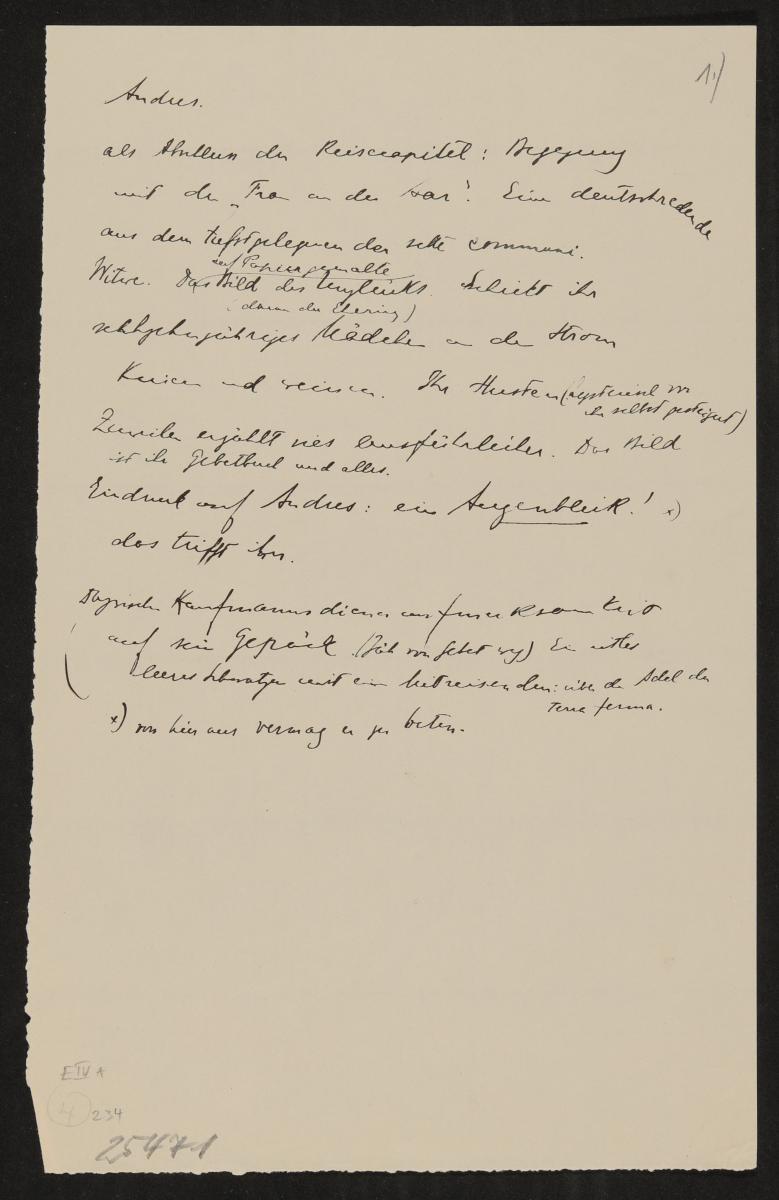 1)
Andres.
als Abschluss des Reisecapitel: Begegnung
mit der „Frau an der Isar“. Eine deutschredende
aus dem tiefstgelegenen der sette communi.
auf Papier gemalte
Witwe. Das Bild des Unglücks. Schickt ihr
(daran der Ehering)
sechzehnjähriges Mädchen an den Strom
Knieen und weinen. Ihr Husten (hysterisch von
ihr selbst gesteigert)
Zuweilen erzählt sies ausführlicher. Das Bild
ist ihr Gebetbuch und alles.
Eindruck auf Andres: ein Augenblick! x)
das trifft ihn.
Kaufmannsdiener aufmerksam
auf sein Gepäck. Ein
leeres mit ein Mitreisenden: über den Adel der
Terra ferma.
x) von hier aus vermag er zu beten.
E IV A
4 234
25471